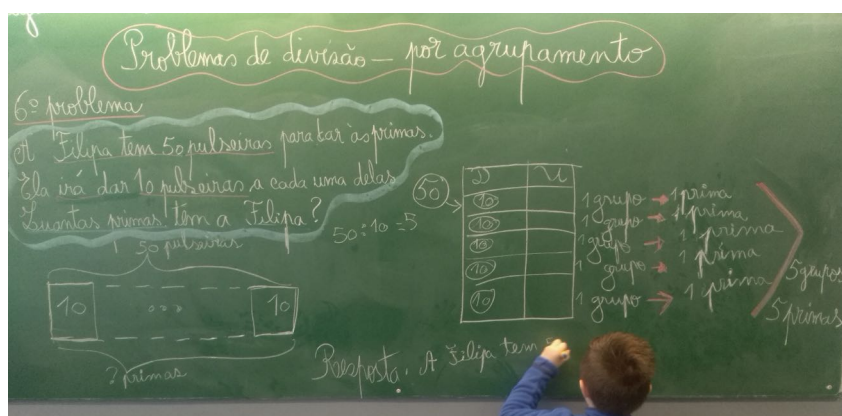 Problemas de divisão — por agrupamento
6º problema
A Filipa tem 50 pulseiras para dar às primas.
Ela irá dar 10 pulseiras a cada uma delas.
Quantas primas tem a Filipa?
50 pulseiras
10 ... 10
? primas
50:10=5
50
D U
10 1 grupo → 1 prima
10 1 grupo → 1 prima
10 1 grupo → 1 prima
10 1 grupo → 1 prima
10 1 grupo → 1 prima
5 grupos
5 primas
Resposta. A Filipa tem